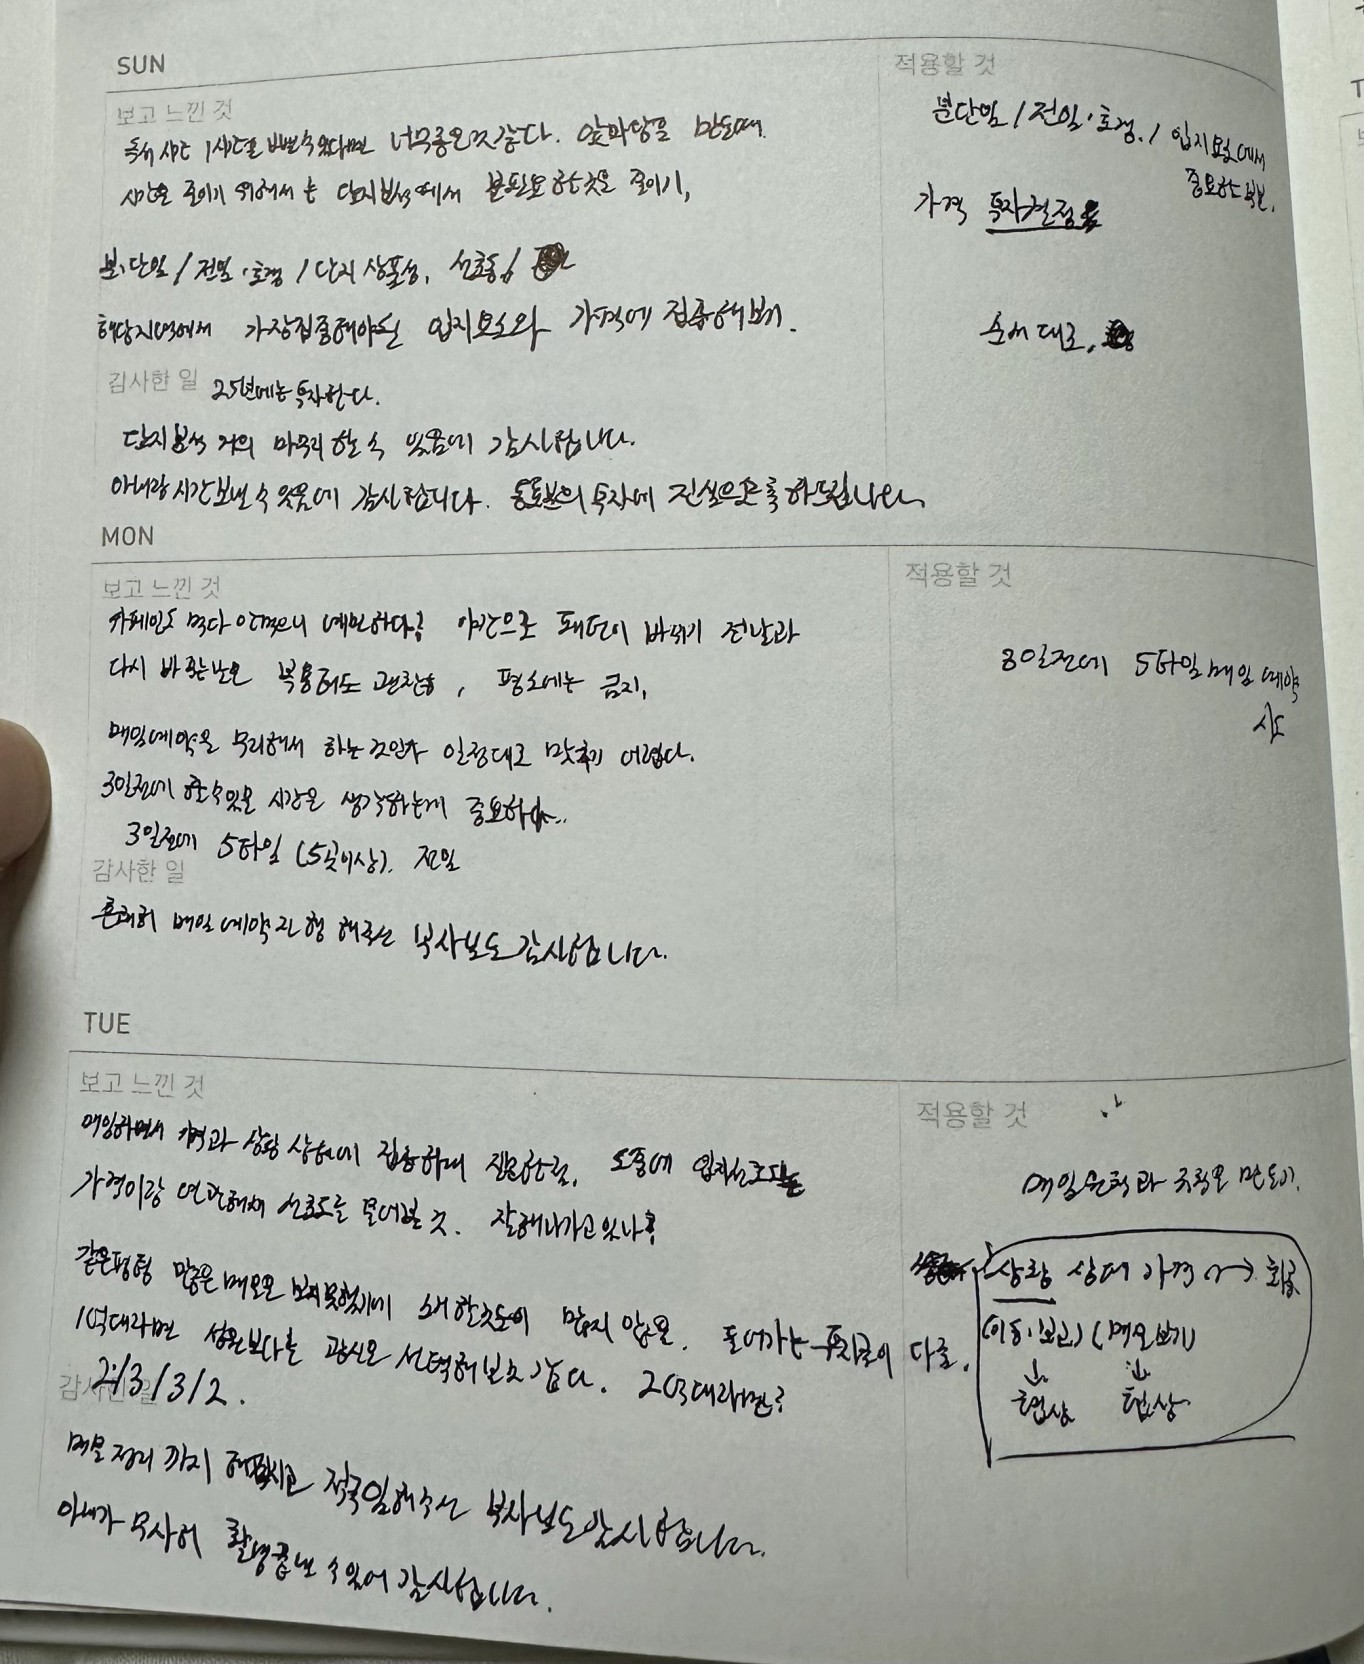 SUN
보고 느낀 것
독서 시간 1시간을 수 있다면 너무 좋은 것 같다. 앞마당을 만들때
시간을 줄이기 위해서는 단지분석에서 불필요한 것을 줄이기,
분·단일 / 전일·호갱 / 단지 상품성, 선호동 /
해당지역에서 가장 집중해야될 입지요소와 가격에 집중해보기.
적용할 것
분단임 / 전임·호갱. / 입지요소에서
중요한 부분.
가격 투자결정
순서대로.
감사한 일
25년에는 투자한다.
단지분석 거의 마무리 할 수 있음에 감사합니다.
아내랑 시간 보낼 수 있음에 감사합니다. 투자에 진심으로
MON
보고 느낀 것
카페인도 먹다 안먹으니 예민하다? 야간으로 패턴이 바뀌기 전날과
다시 바뀌는 날은 복용해도 괜찮음, 평소에는 금지,
매임예약을 무리해서 하는 것인가 일정대로 맞추기 어렵다.
3일전에 할 수 있는 시간을 생각하는게 중요하다..
3일전에 5타임 (5곳이상). 전임
적용할 것
3일전에 5타임 매임 예약
시도
감사한 일
흔쾌히 매임 예약 진행 해주신 부사님도 감사합니다.
TUE
보고 느낀 것
매임하면서 가격과 상황 상태에 집중하며 질문한 것. 도중에 입지선호도는
가격이랑 연관해서 선호도를 물어본 것. 잘해나가고 있나?
같은평형 많은 매물을 보지 못했기에 할 것들이 많지 않음. 들어가는 투자금이 다름.
1억대라면 보다는 선택해보고 싶다. 2억대라면?
적용할 것
매임 만들기.
상황 상태 가격 → 최종
(이동·보고) (매물보기)
↓ ↓
협상 협상
감사한 일
2/3/3/2.
매물 정리 까지 해주시고 부사님도 감사합니다.
아내가 무사히 촬영 끝낼 수 있어 감사합니다.